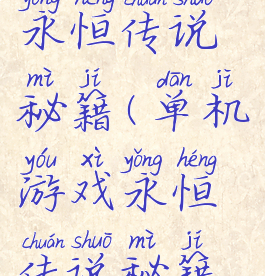 yǒng héng chuán shuō
永恒传说
mì jí dān jī
秘籍(单机
yóu xì yǒng héng
游戏永恒
chuán shuō mì jí
传说秘籍